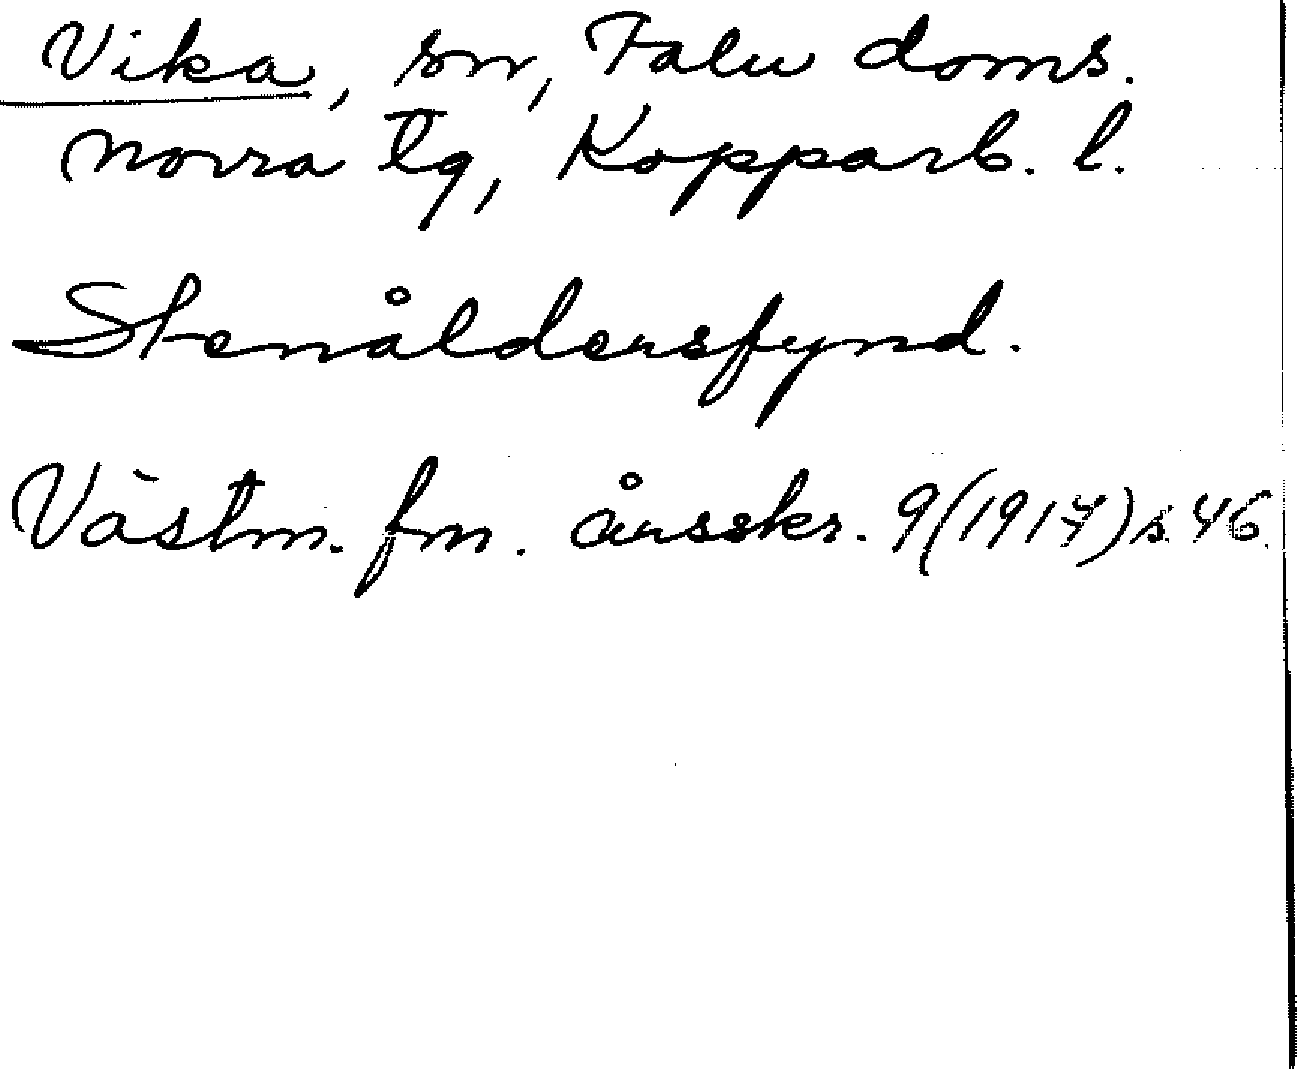 Vika, sn, Falu doms.
norra tg, Kopparb. l.
Stenåldersfynd.
Västm. fm. årsskr. 9(1917) s. 46.